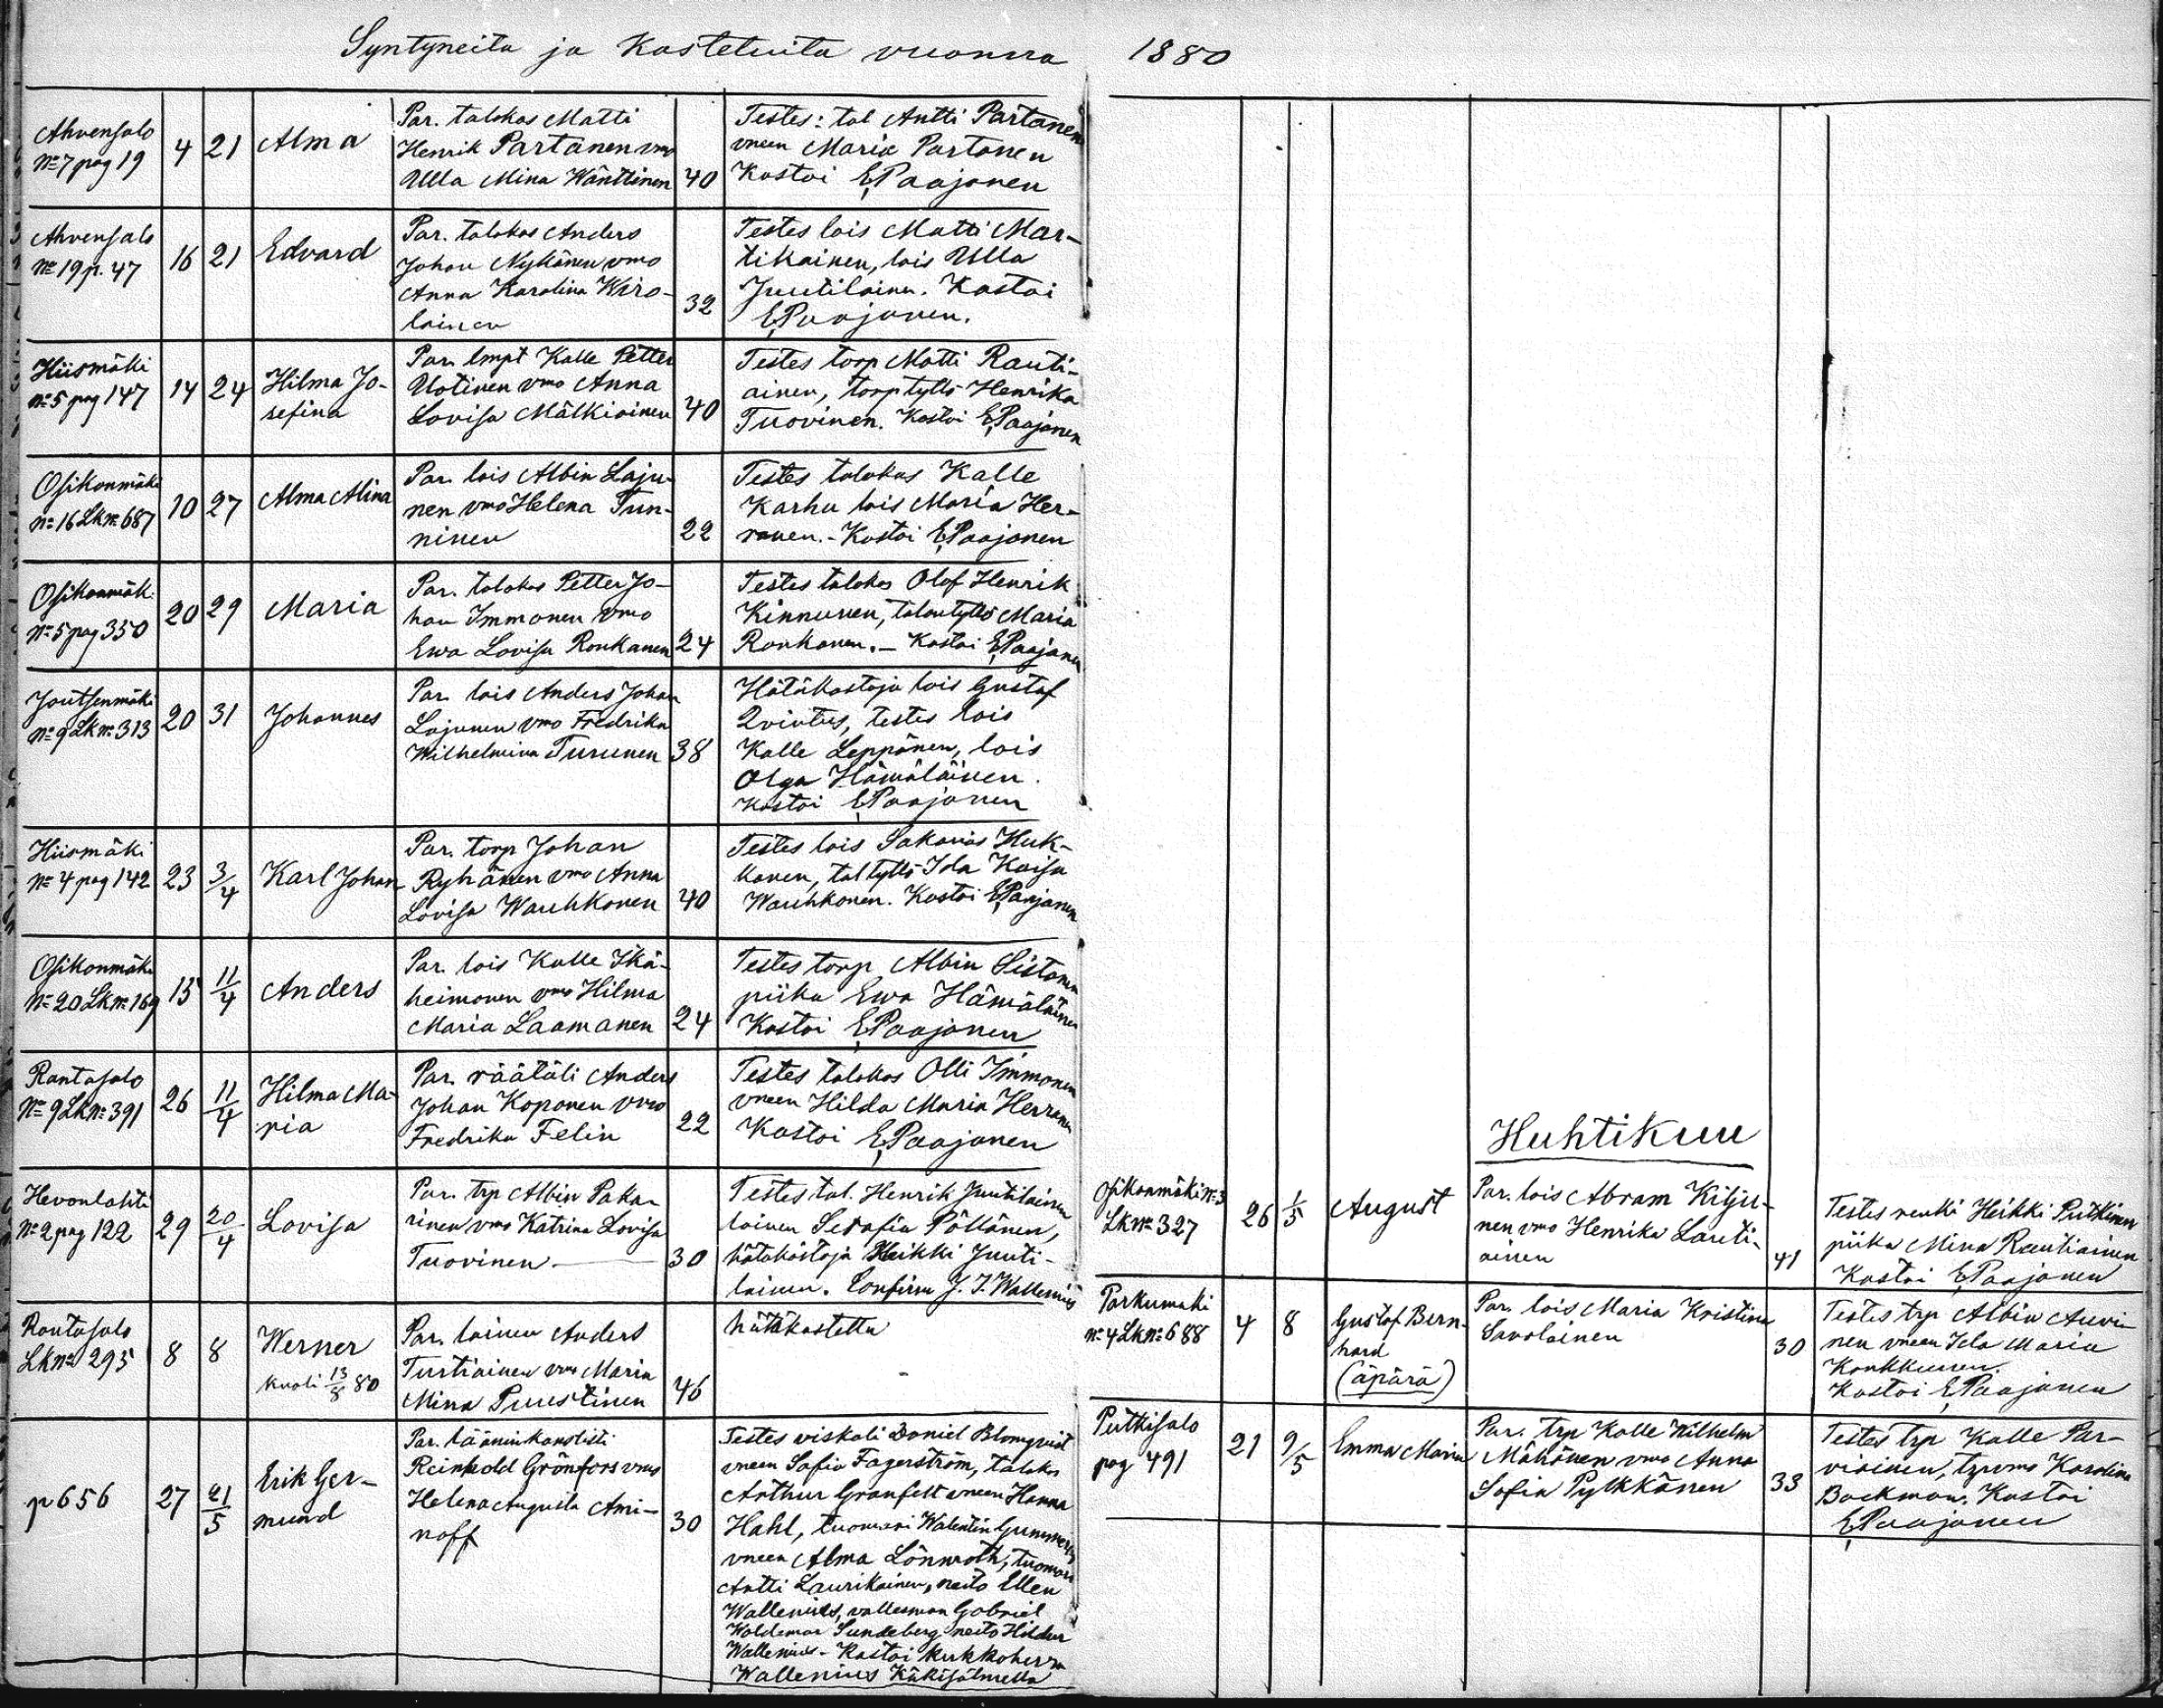 Syntyneitä ja Kastetuita vuonna 1880
Ahvensalo
No 7 pag 19
4
21
Alma
Par. talokas Matti
Henrik Partanen vmo
Ulla Mina Wänttinen
40
Testes: tal Antti Partanen
vneen Maria Partanen
Kastoi E. Paajanen
Ahvensalo
No 19 p. 47
16
21
Edvard
Par. talokas Anders
Johan Nykänen vmo
Anna Karolina Wiro-
lainen
32
Testes lois Matti Mar-
tikainen, lois Ulla
Juutilainen. Kastoi
E. Paajanen.
Hiismäki
No 5 pag 147
14
24
Hilma Jo-
sefina
Par. lmpt Kalle Petter
Uotinen vmo Anna
Lovisa Mälkiäinen
40
Testes torp Matti Rauti-
ainen, torp tyttö Henrika
Tuovinen. Kastoi E. Paajanen
Osikonmäki
No 16 Lk No 687
10
27
Alma Alina
Par. lois Albin Laju-
nen vmo Helena Tun-
ninen
22
Testes talokas Kalle
Karhu lois Maria Her-
ranen. - Kastoi E. Paajanen
Osikonmäk.
No 5 pag 350
20
29
Maria
Par. talokas Petter Jo-
han Immonen vmo
Ewa Lovisa Ronkanen
24
Testes talokas Olof Henrik
Kinnunen, talontyttö Maria
Ronkanen. - Kastoi E. Paajanen
Joutsenmäki
No 9 Lk No 313
20
31
Johannes
Par. lois Anders Johan
Lajunen vmo Fredrika
Wilhelmina Turunen
38
Hätäkastaja lois Gustaf
Qvintus, testes lois
Kalle Leppänen, lois
Olga Hämäläinen.
Kastoi E. Paajanen
Hiismäki
No 4 pag 142
23
3/4
Karl Johan
Par. torp Johan
Ryhänen vmo Anna
Lovisa Wauhkonen
40
Testes lois Sakarias Huk-
kanen, tal tyttö Ida Kaisa
Wauhkonen. Kastoi E. Paajanen
Osikonmäki
No 20 Lk No 169
15
11/4
Anders
Par. lois Kalle Ikä-
heimonen vmo Hilma
Maria Laamanen
24
Testes torp Albin Sistonen
piika Ewa Hämäläinen
Kastoi E. Paajanen
Rantasalo
No 9 Lk No 391
26
11/4
Hilma Ma-
ria
Par. räätäli Anders
Johan Koponen vmo
Fredrika Felin
22
Testes talokas Olli Immonen
vneen Hilda Maria Herranen
Kastoi E. Paajanen
Hevonlahti
No 2 pag 122
29
20/4
Lovisa
Par. trp Albin Paka-
rinen vmo Katrina Lovisa
Tuovinen
30
Testes tal. Henrik Juutilainen
loinen Serafia Pöllänen,
hätäkastaja Heikki Juuti-
lainen. Confirm J. I. Wallenius
Rantasalo
Lk No 295
8
8
Werner
kuoli 13/8 80
Par. loinen Anders
Turtiainen vmo Maria
Mina Puustinen
46
hätäkastettu
p 656
27
21/5
Erik Ger-
mund
Par. läänin kanslisti
Reinhold Grönfors vmo
Helena Augusta Ami-
noff
30
Testes viskali Daniel Blomqvist
vneen Sofia Fagerström, talokas
Arthur Granfelt vneen Hanna
Hahl, tuomari Walentin Gummerus
vneen Alma Lönnroth, tuomari
Antti Laurikainen, neito Ellen
Wallenius, vallesman Gabriel
Woldemar Sundeberg neito Hildur
Wallenius - Kastoi kirkkoherra
Wallenius Käkisalmella
Huhtikuu
Osikonmäki No 3
Lk No 327
26
1/5
August
Par. lois Abram Kilju-
nen vmo Henrika Lauti-
ainen
41
Testes renki Heikki Putkinen
piika Mina Rautiainen
Kastoi E. Paajanen
Parkumäki
No 4 Lk No 688
4
8
Gustof Bern-
hard
(äpärä)
Par. lois Maria Kristina
Savolainen
30
Testes trp Albin Auvi-
nen vneen Ida Maria
Konkkunen.
Kastoi E. Paajanen
Putkisalo
pag 491
21
9/5
Emma Maria
Par. trp Kalle Wilhelm
Mähönen vmo Anna
Sofia Pylkkänen
33
Testes trp Kalle Par-
viainen, trp vmo Karolina
Backman. Kastoi
E. Paajanen